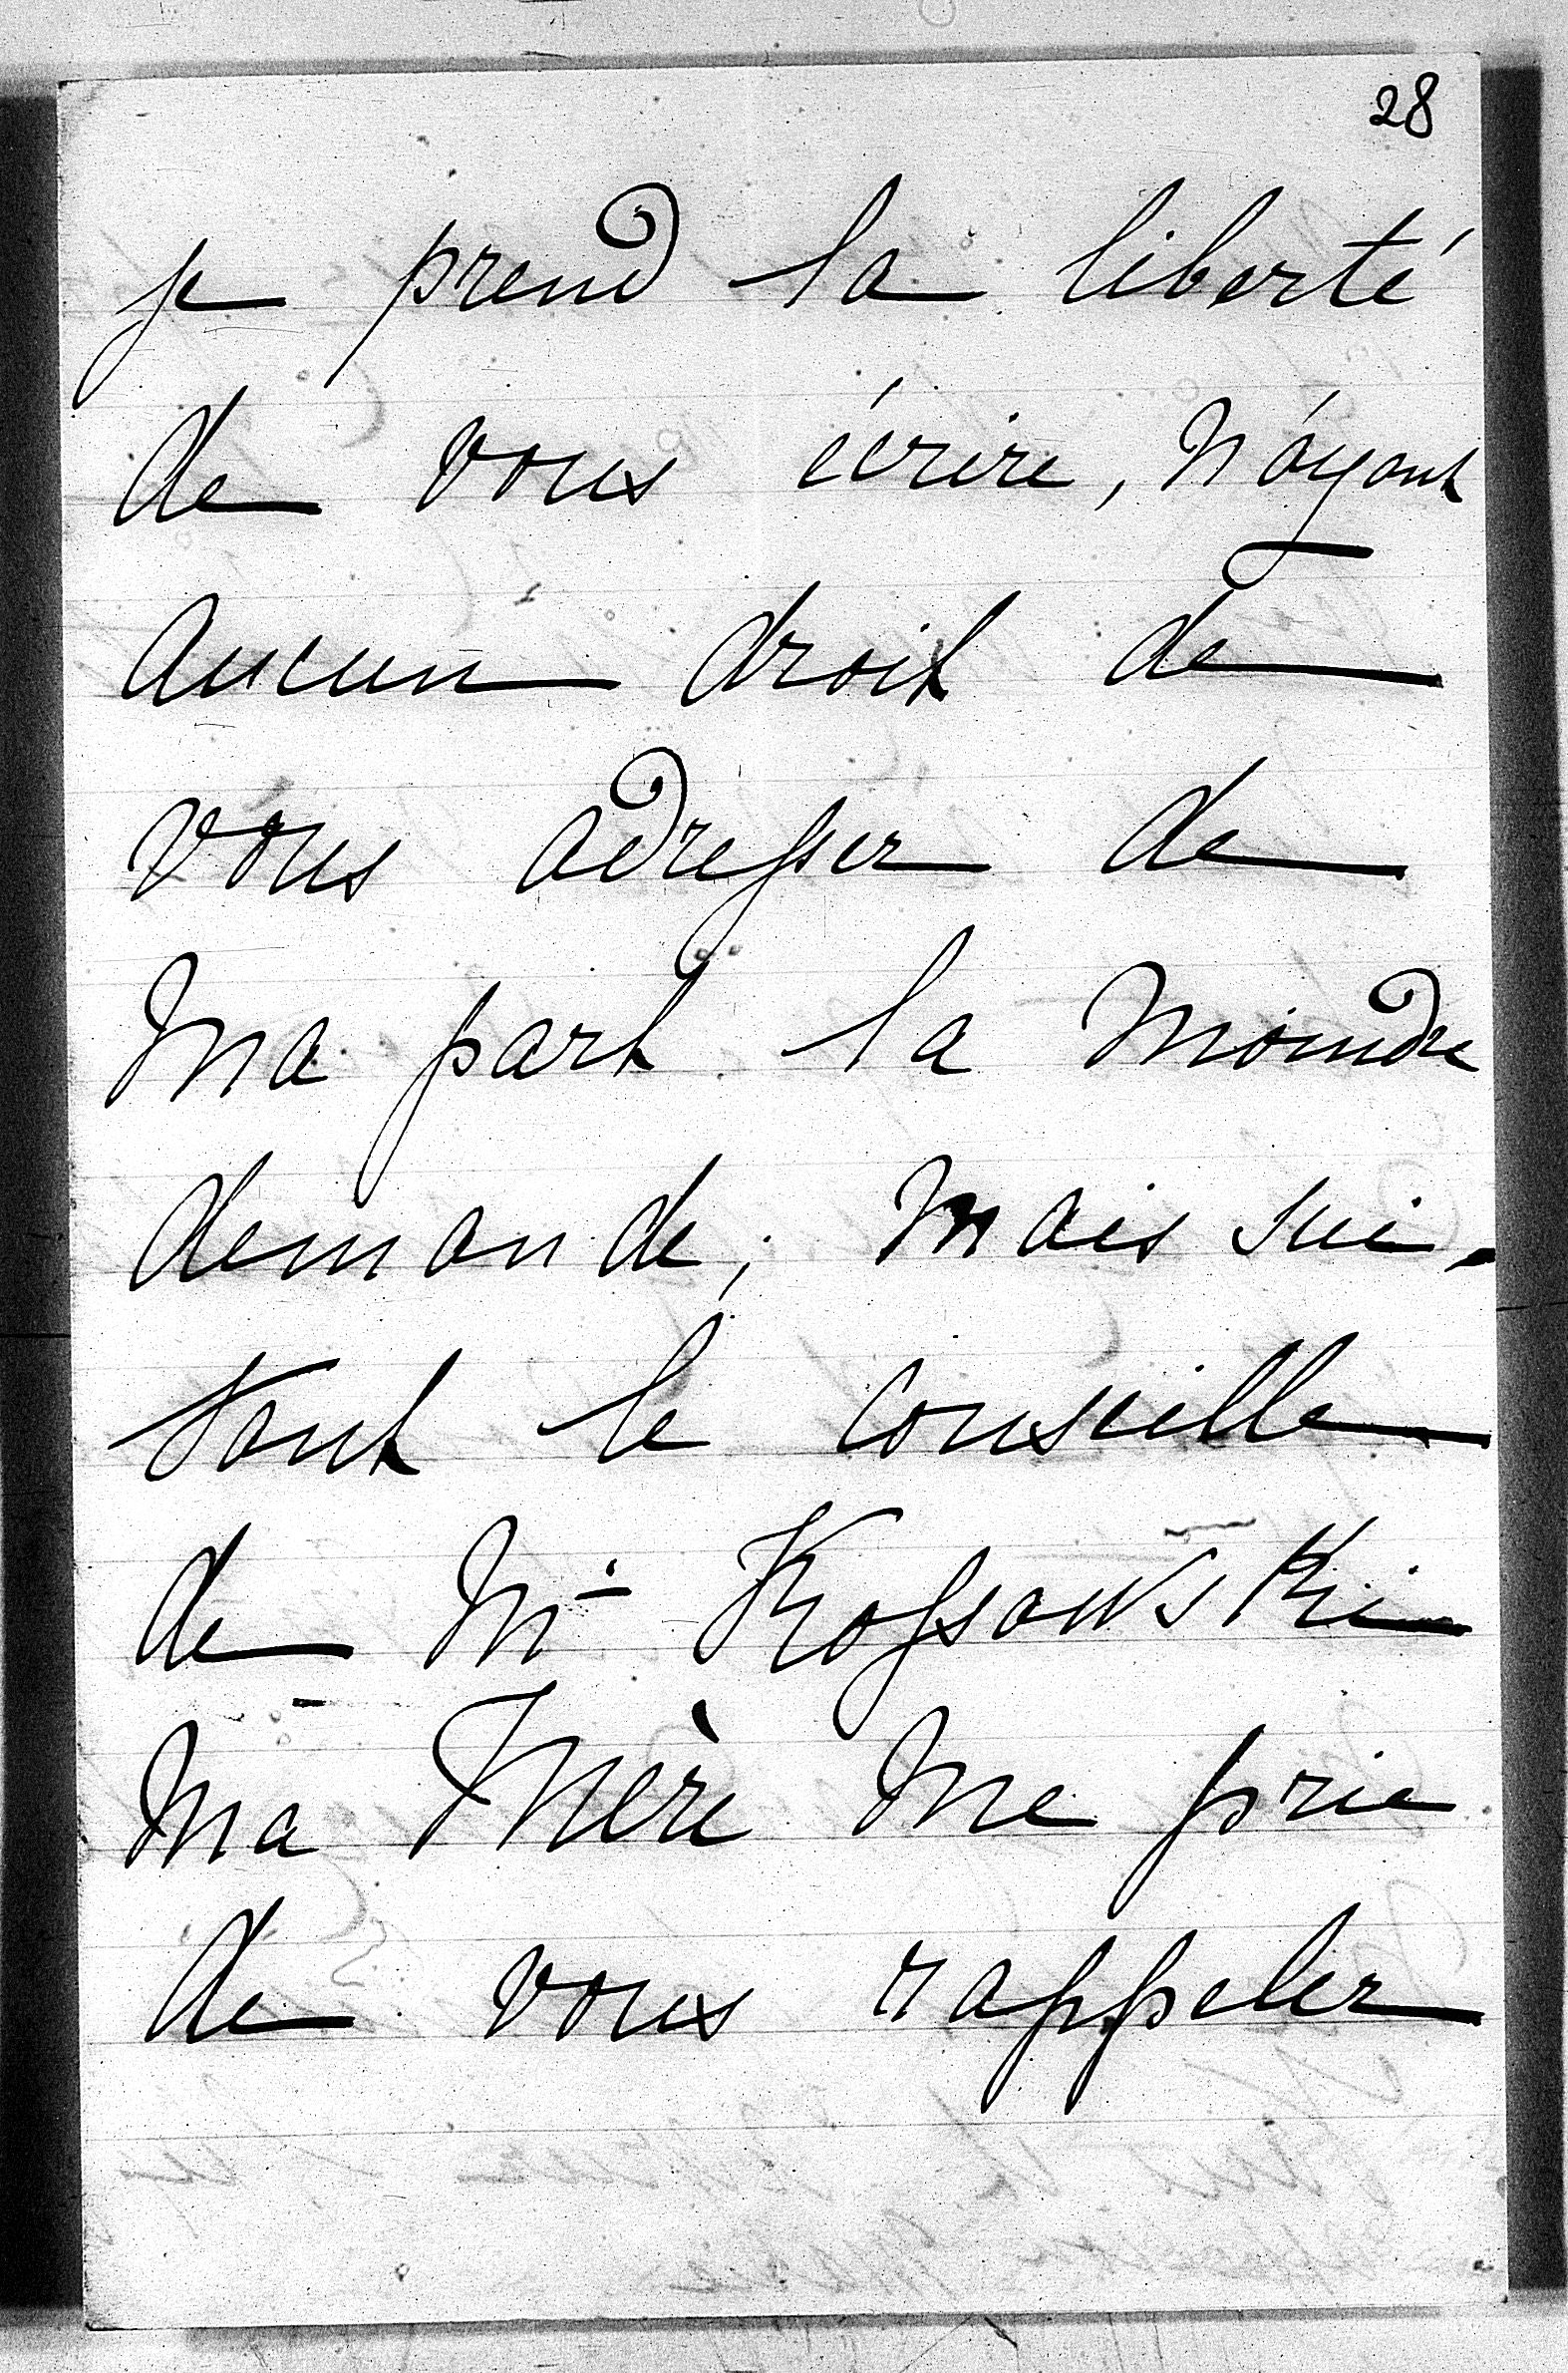 28
je prend la liberté
de vous écrire, n'áyant
aucun droit de
vous adresser de
ma part la moindre
demande; mais sui-
tant le conseille
de Mr Kossowski
ma Mère me prie
de vous rappeler